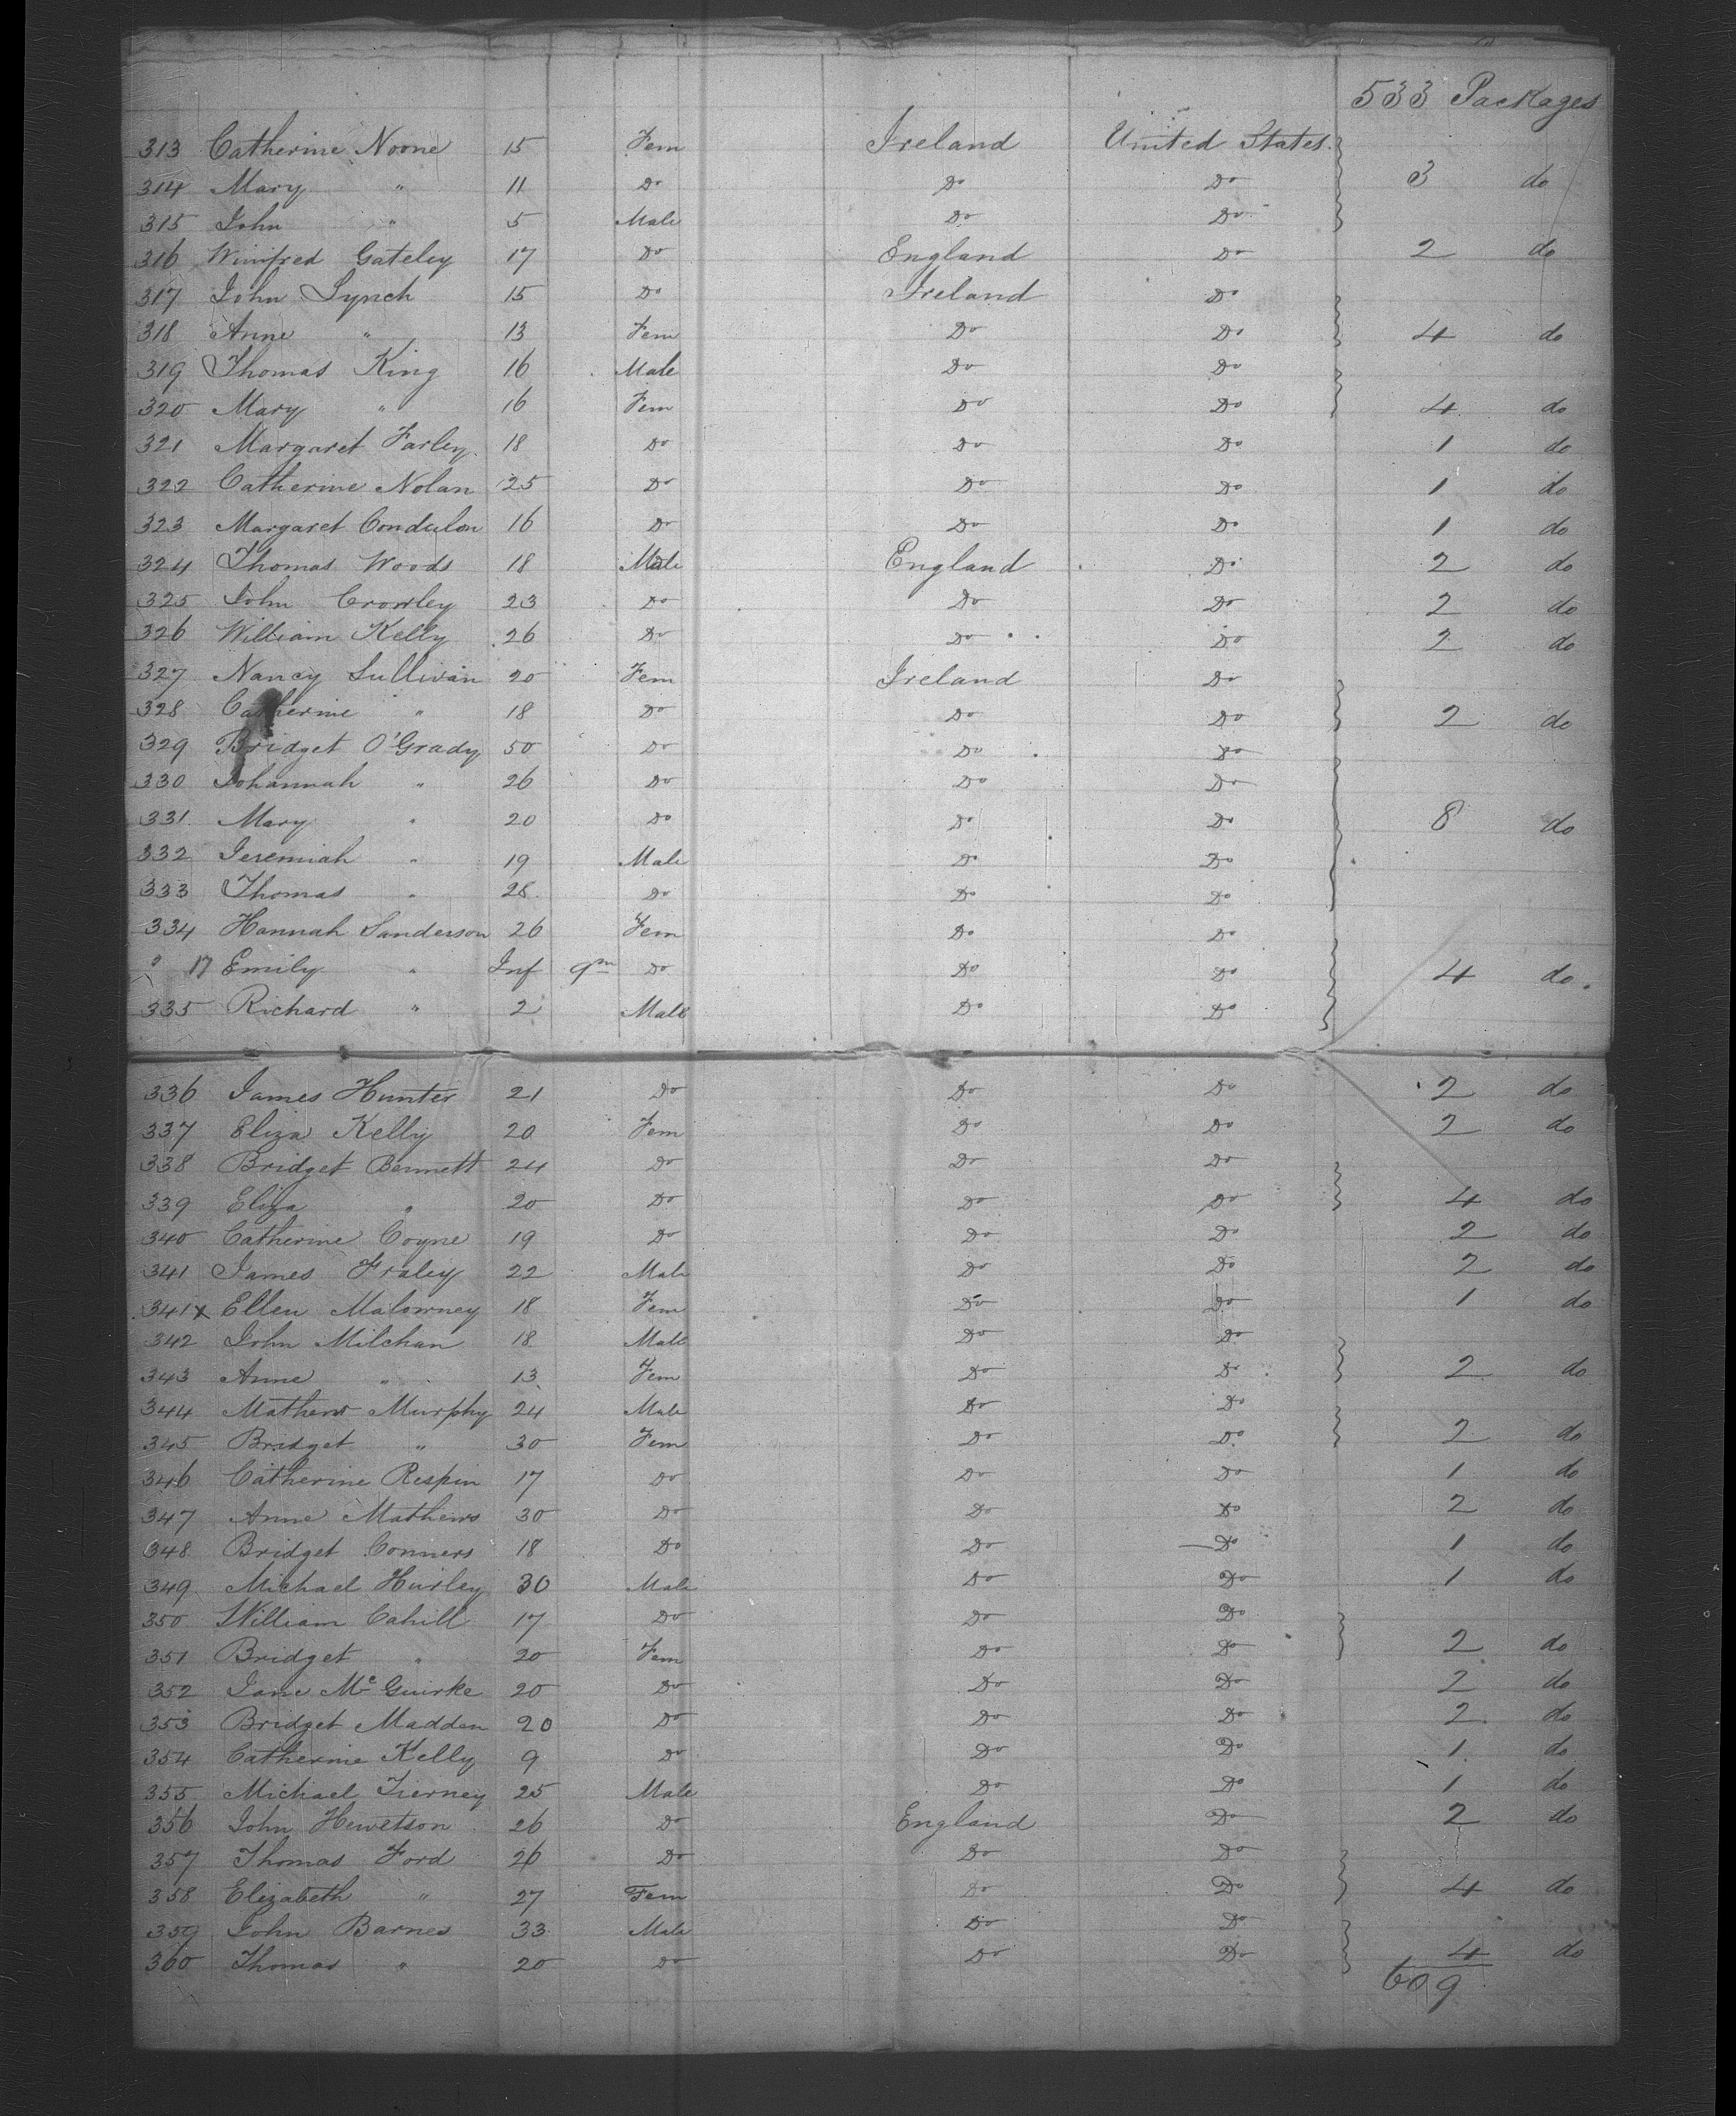 533 Packages
313 Catherine Noone 15 Fem Ireland United States
314 Mary " 11 Do Do Do 3 do
315 John " 5 Male Do Do
316 Winifred Gateley 17 Do England Do 2 do
317 John Lynch 15 Do Ireland Do
318 Anne " 13 Fem Do Do 4 do
319 Thomas King 16 Male Do Do
320 Mary " 16 Fem Do Do 4 do
321 Margaret Farley 18 Do Do Do 1 do
322 Catherine Nolan 25 Do Do Do 1 do
323 Margaret Condulon 16 Do Do Do 1 do
324 Thomas Woods 18 Male England Do 2 do
325 John Crowley 23 Do Do Do 2 do
326 William Kelly 26 Do Do Do 2 do
327 Nancy Sullivan 20 Fem Ireland Do
328 Catherine " 18 Do Do Do 2 do
329 Bridget O'Grady 50 Do Do Do
330 Johannah " 26 Do Do Do
331 Mary " 20 Do Do Do 8 do
332 Jeremiah " 19 Male Do Do
333 Thomas " 28 Do Do Do
334 Hannah Sanderson 26 Fem Do Do
" 17 Emily " Inf 9m Do Do Do 4 do
335 Richard " 2 Male Do Do
336 James Hunter 21 Do Do Do 2 do
337 Eliza Kelly 20 Fem Do Do 2 do
338 Bridget Bennett 24 Do Do Do
339 Eliza " 20 Do Do Do 4 do
340 Catherine Coyne 19 Do Do Do 2 do
341 James Fraley 22 Male Do Do 2 do
341x Ellen Malowney 18 Fem Do Do 1 do
342 John Milchan 18 Male Do Do
343 Anne " 13 Fem Do Do 2 do
344 Mathew Murphy 24 Male Do Do
345 Bridget " 30 Fem Do Do 2 do
346 Catherine Respin 17 Do Do Do 1 do
347 Anne Mathews 30 Do Do Do 2 do
348 Bridget Conners 18 Do Do Do 1 do
349 Michael Hurley 30 Male Do Do 1 do
350 William Cahill 17 Do Do Do
351 Bridget " 20 Fem Do Do 2 do
352 Jane McGuirke 20 Do Do Do 2 do
353 Bridget Madden 20 Do Do Do 2 do
354 Catherine Kelly 9 Do Do Do 1 do
355 Michael Tierney 25 Male Do Do 1 do
356 John Hewetson 26 Do England Do 2 do
357 Thomas Ford 26 Do Do Do
358 Elizabeth " 27 Fem Do Do 4 do
359 John Barnes 33 Male Do Do
360 Thomas " 20 Do Do Do 4 do
609